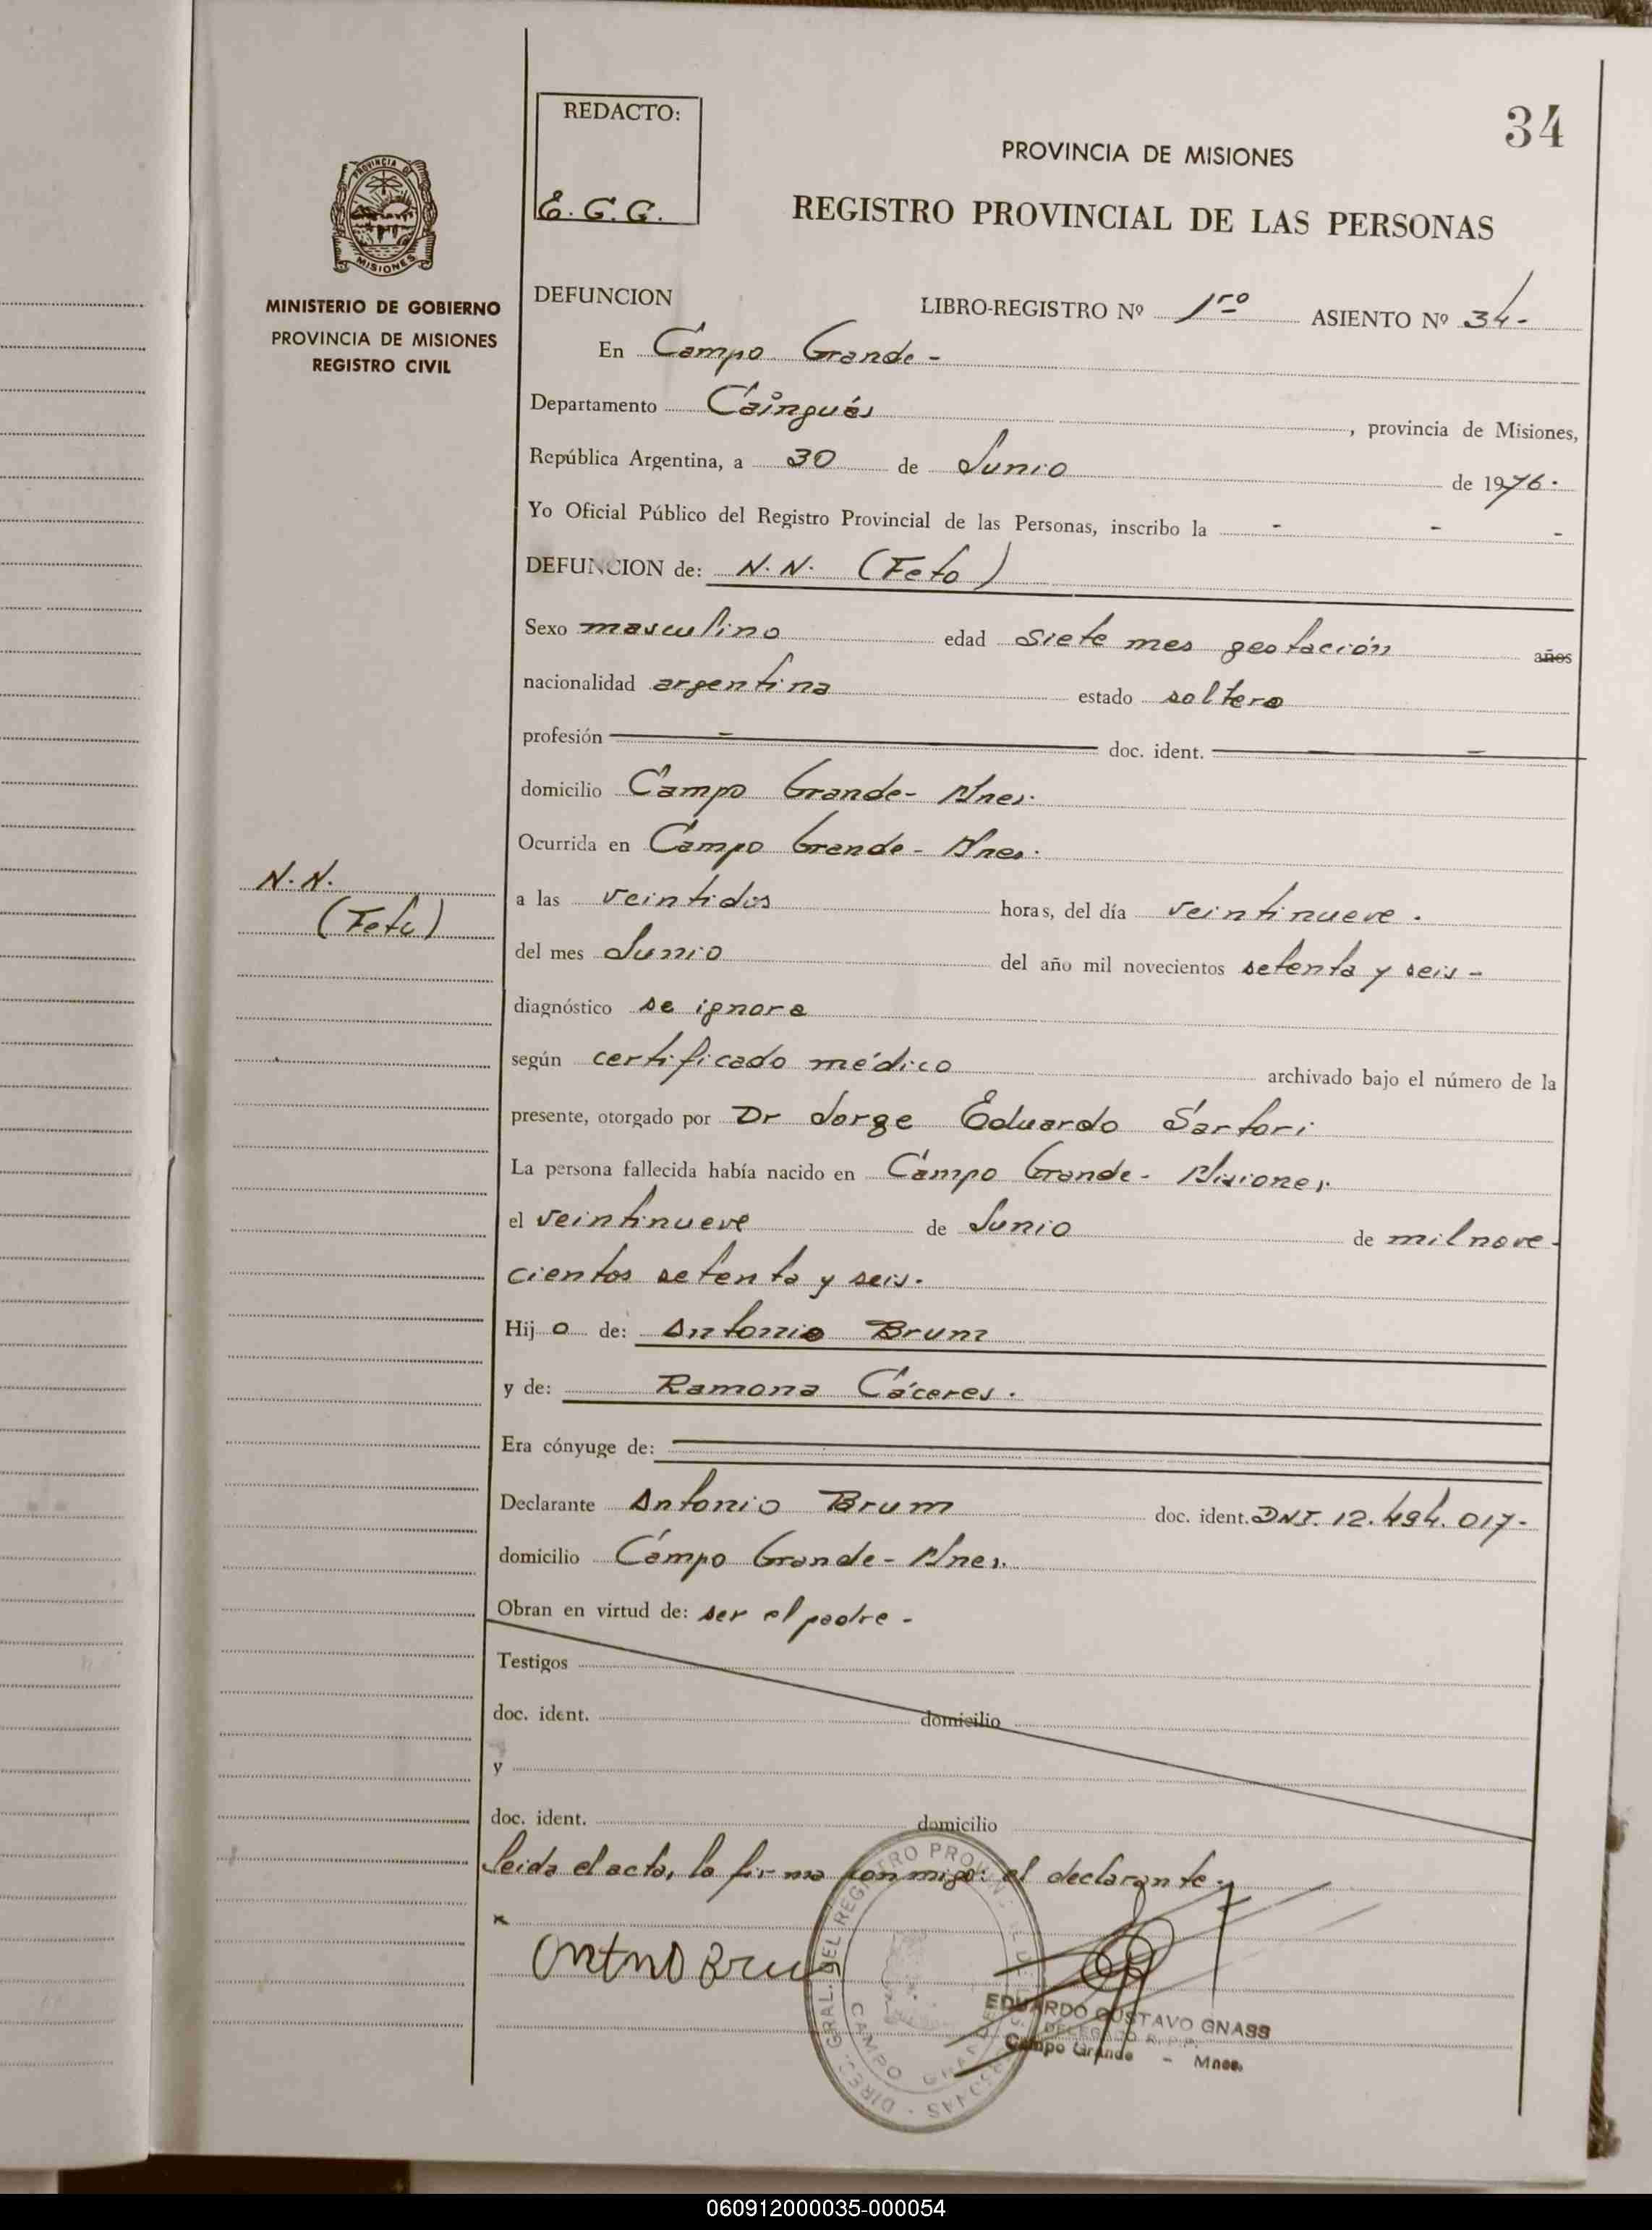 34
REDACTO:
E. G. G.
PROVINCIA DE MISIONES
REGISTRO PROVINCIAL DE LAS PERSONAS
PROVINCIA DE
MISIONES
MINISTERIO DE GOBIERNO
PROVINCIA DE MISIONES
REGISTRO CIVIL
DEFUNCION LIBRO-REGISTRO Nº 1ro ASIENTO Nº 34-
En Campo Grande -
Departamento Caínguás , provincia de Misiones,
República Argentina, a 30 de Junio de 1976.
Yo Oficial Público del Registro Provincial de las Personas, inscribo la - - -
DEFUNCION de: N. N. (Feto)
Sexo masculino edad siete mes gestación años
nacionalidad argentina estado soltero
profesión - doc. ident. - -
domicilio Campo Grande- Mnes.
Ocurrida en Campo Grande - Mnes.
N. N.
(Feto)
a las veintidos horas, del día veintinueve.
del mes Junio del año mil novecientos setenta y seis -
diagnóstico se ignora
según certificado médico archivado bajo el número de la
presente, otorgado por Dr Jorge Eduardo Sartori
La persona fallecida había nacido en Campo Grande- Misiones.
el veintinueve de Junio de mil nove-
cientos setenta y seis.
Hijo de: Antonio Brum
y de: Ramona Cáceres.
Era cónyuge de:
Declarante Antonio Brum doc. ident. DNI. 12.494.017-
domicilio Campo Grande- Mnes.
Obran en virtud de: ser el padre -
Testigos
doc. ident. domicilio
y
doc. ident. domicilio
Leida el acta, la firma conmigo: el declarante.
DIREC. GRAL. DEL REGISTRO PROVINCIAL DE LAS PERSONAS -
CAMPO GRANDE
EDUARDO GUSTAVO GNASS
DELEGADO R.P.P.
Campo Grande - Mnes.
060912000035-000054